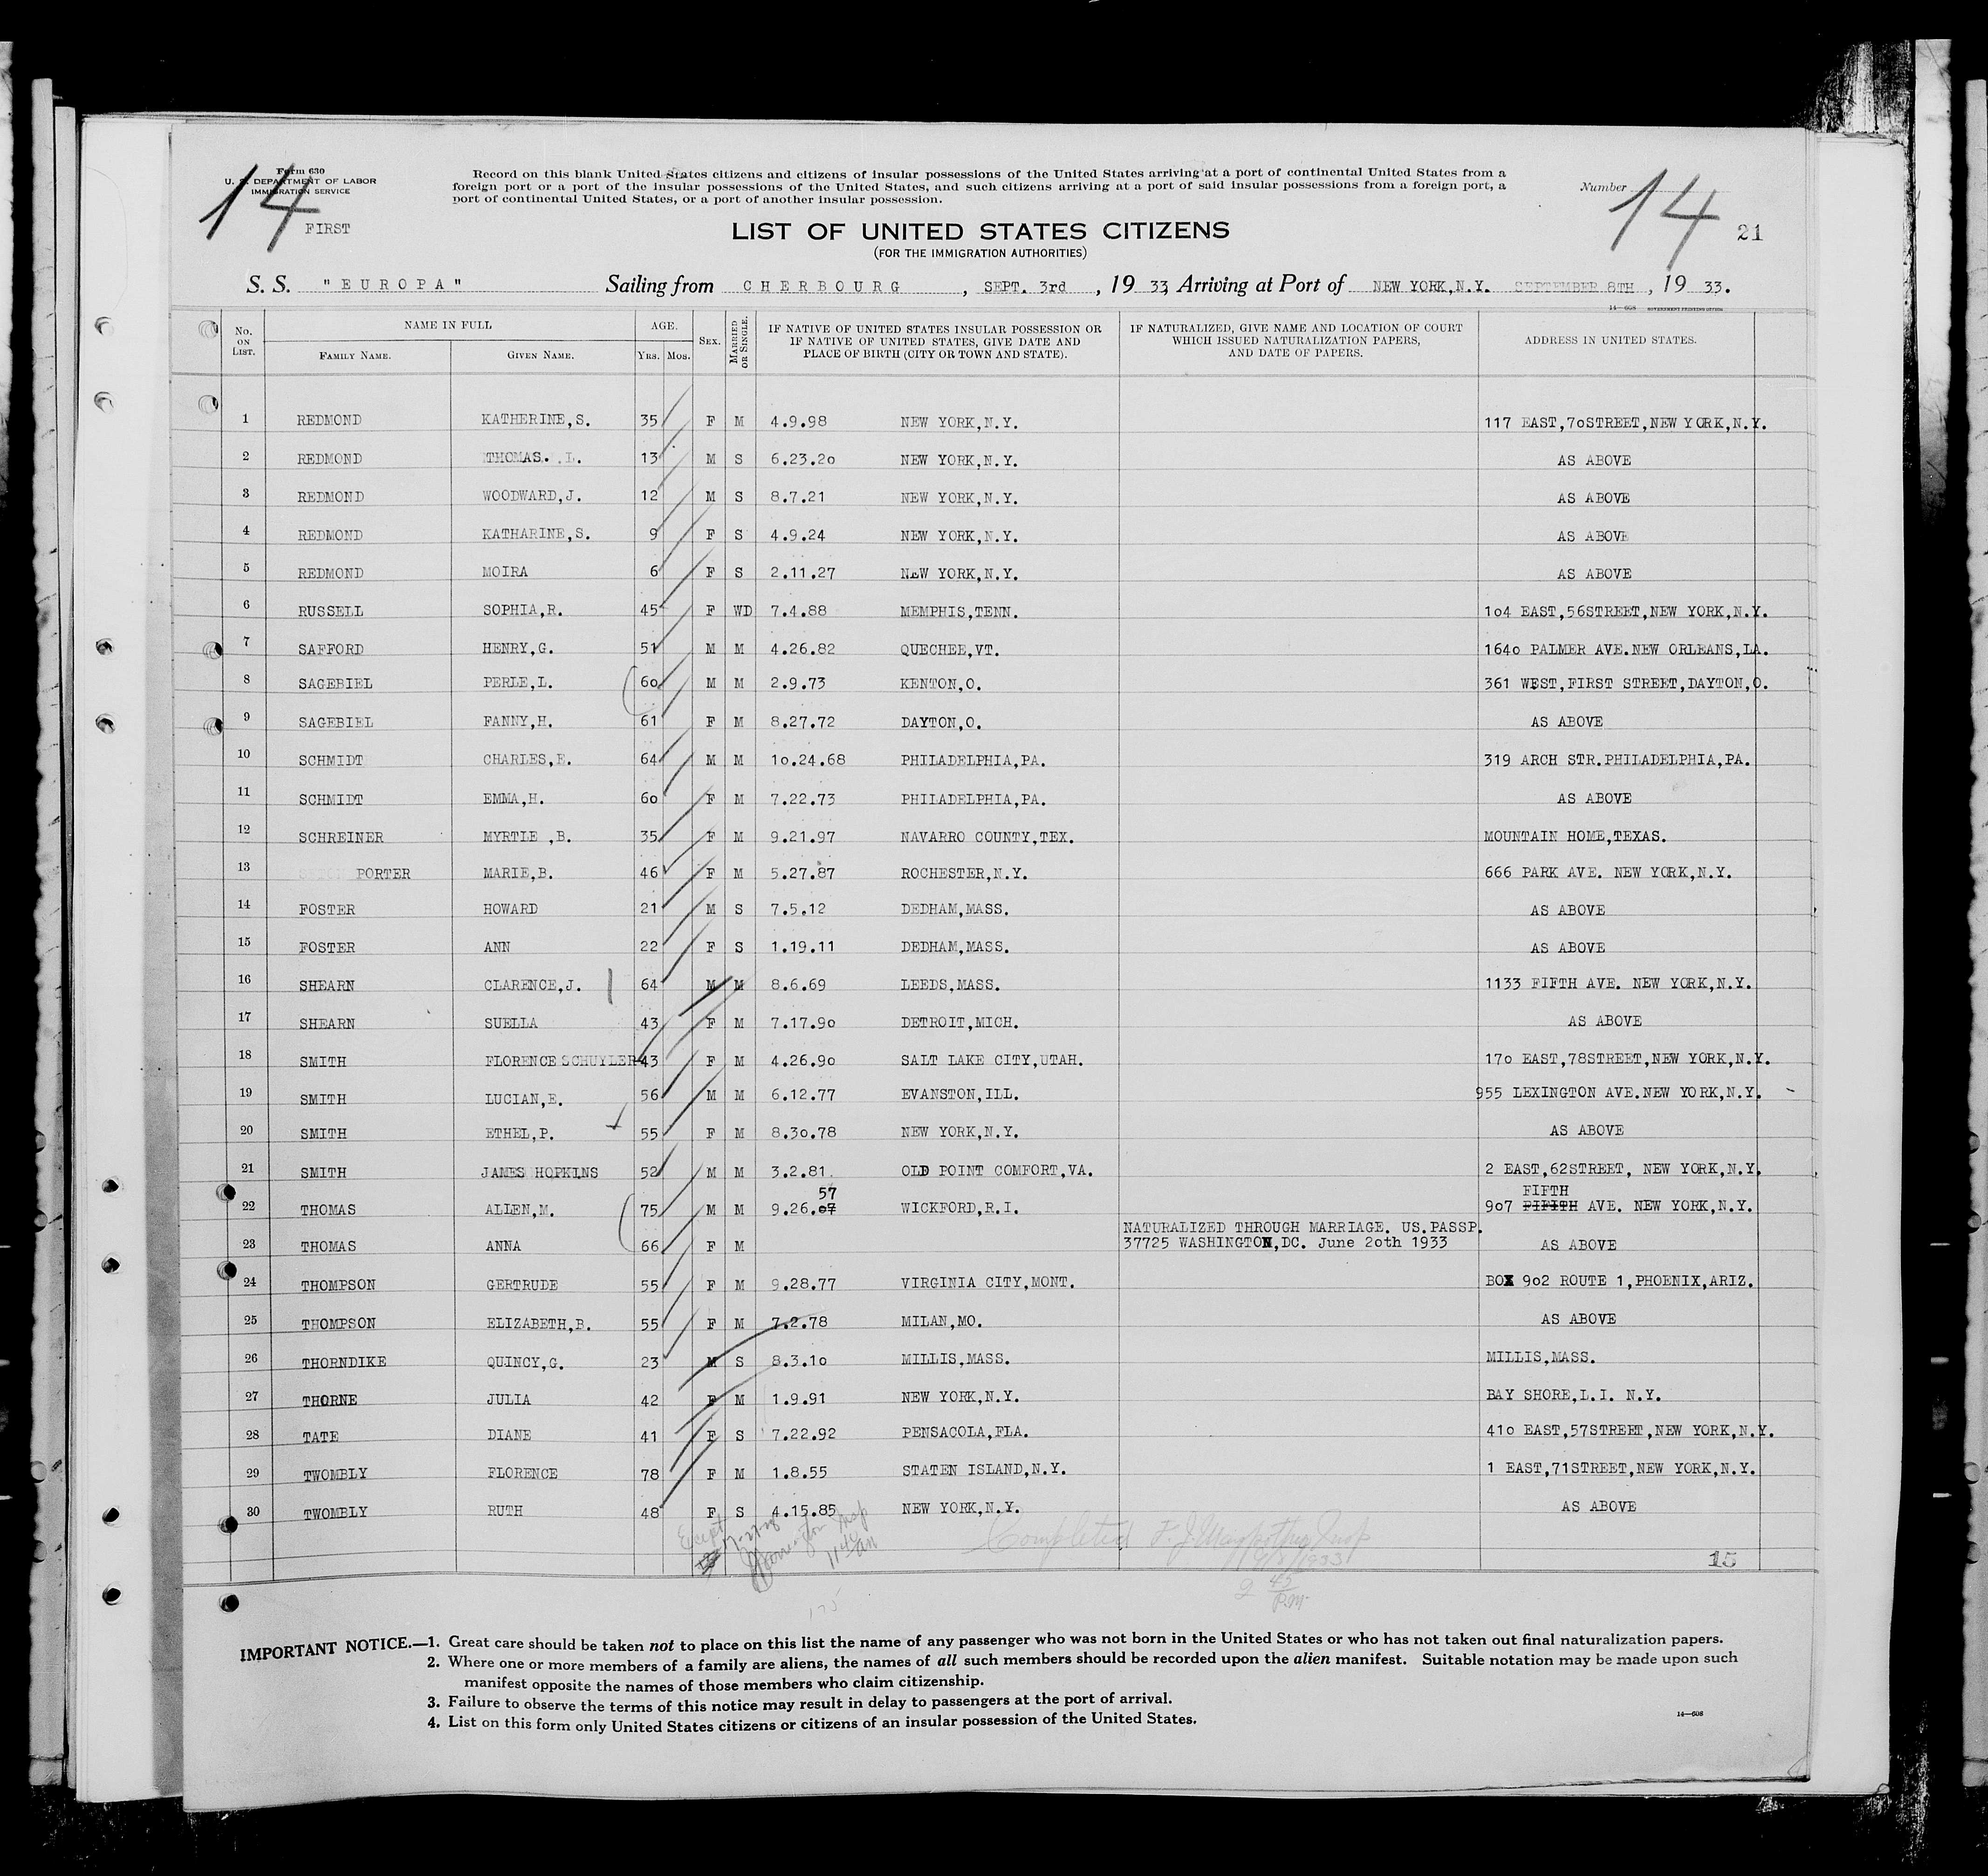 14
Form 630
U. S. DEPARTMENT OF LABOR
IMMIGRATION SERVICE
FIRST
Record on this blank United States citizens and citizens of insular possessions of the United States arriving at a port of continental United States from a
foreign port or a port of the insular possessions of the United States, and such citizens arriving at a port of said insular possessions from a foreign port, a
port of continental United States, or a port of another insular possession.
Number 14
21
LIST OF UNITED STATES CITIZENS
(FOR THE IMMIGRATION AUTHORITIES)
S. S. "EUROPA" Sailing from CHERBOURG, SEPT. 3rd, 19 33, Arriving at Port of NEW YORK,N.Y. SEPTEMBER 8TH, 19 33.
14—608 GOVERNMENT PRINTING OFFICE
No. ON LIST. NAME IN FULL FAMILY NAME. GIVEN NAME. AGE. YRS. MOS. SEX. MARRIED OR SINGLE. IF NATIVE OF UNITED STATES INSULAR POSSESSION OR IF NATIVE OF UNITED STATES, GIVE DATE AND PLACE OF BIRTH (CITY OR TOWN AND STATE). IF NATURALIZED, GIVE NAME AND LOCATION OF COURT WHICH ISSUED NATURALIZATION PAPERS, AND DATE OF PAPERS. ADDRESS IN UNITED STATES.
1 REDMOND KATHERINE,S. 35 F M 4.9.98 NEW YORK,N.Y. 117 EAST,7oSTREET,NEW YORK,N.Y.
2 REDMOND THOMAS. .L. 13 M S 6.23.2o NEW YORK,N.Y. AS ABOVE
3 REDMOND WOODWARD,J. 12 M S 8.7.21 NEW YORK,N.Y. AS ABOVE
4 REDMOND KATHARINE,S. 9 F S 4.9.24 NEW YORK,N.Y. AS ABOVE
5 REDMOND MOIRA 6 F S 2.11.27 NEW YORK,N.Y. AS ABOVE
6 RUSSELL SOPHIA,R. 45 F WD 7.4.88 MEMPHIS,TENN. 1o4 EAST,56STREET,NEW YORK,N.Y.
7 SAFFORD HENRY,G. 51 M M 4.26.82 QUECHEE,VT. 164o PALMER AVE.NEW ORLEANS,LA.
8 SAGEBIEL PERLE,L. 6o M M 2.9.73 KENTON,O. 361 WEST,FIRST STREET,DAYTON,O.
9 SAGEBIEL FANNY,H. 61 F M 8.27.72 DAYTON,O. AS ABOVE
10 SCHMIDT CHARLES,E. 64 M M 1o.24.68 PHILADELPHIA,PA. 319 ARCH STR.PHILADELPHIA,PA.
11 SCHMIDT EMMA,H. 6o F M 7.22.73 PHILADELPHIA,PA. AS ABOVE
12 SCHREINER MYRTLE ,B. 35 F M 9.21.97 NAVARRO COUNTY,TEX. MOUNTAIN HOME,TEXAS.
13 PORTER MARIE,B. 46 F M 5.27.87 ROCHESTER,N.Y. 666 PARK AVE. NEW YORK,N.Y.
14 FOSTER HOWARD 21 M S 7.5.12 DEDHAM,MASS. AS ABOVE
15 FOSTER ANN 22 F S 1.19.11 DEDHAM,MASS. AS ABOVE
16 SHEARN CLARENCE,J. 64 M M 8.6.69 LEEDS,MASS. 1133 FIFTH AVE. NEW YORK,N.Y.
17 SHEARN SUELLA 43 F M 7.17.9o DETROIT,MICH. AS ABOVE
18 SMITH FLORENCE SCHUYLER 43 F M 4.26.9o SALT LAKE CITY,UTAH. 17o EAST,78STREET,NEW YORK,N.Y.
19 SMITH LUCIAN,E. 56 M M 6.12.77 EVANSTON,ILL. 955 LEXINGTON AVE.NEW YORK,N.Y.
20 SMITH ETHEL,P. 55 F M 8.3o.78 NEW YORK,N.Y. AS ABOVE
21 SMITH JAMES HOPKINS 52 M M 3.2.81. OLD POINT COMFORT,VA. 2 EAST,62STREET, NEW YORK,N.Y.
57 FIFTH
22 THOMAS ALLEN,M. 75 M M 9.26.o7 WICKFORD,R.I. 9o7 FIFITH AVE. NEW YORK,N.Y.
NATURALIZED THROUGH MARRIAGE. US.PASSP.
23 THOMAS ANNA 66 F M 37725 WASHINGTON,DC. June 2oth 1933 AS ABOVE
24 THOMPSON GERTRUDE 55 F M 9.28.77 VIRGINIA CITY,MONT. BOX 9o2 ROUTE 1,PHOENIX,ARIZ.
25 THOMPSON ELIZABETH,B. 55 F M 7.2.78 MILAN,MO. AS ABOVE
26 THORNDIKE QUINCY,G. 23 M S 8.3.1o MILLIS,MASS. MILLIS,MASS.
27 THORNE JULIA 42 F M 1.9.91 NEW YORK,N.Y. BAY SHORE,L.I. N.Y.
28 TATE DIANE 41 F S 7.22.92 PENSACOLA,FLA. 41o EAST,57STREET,NEW YORK,N.Y.
29 TWOMBLY FLORENCE 78 F M 1.8.55 STATEN ISLAND,N.Y. 1 EAST,71STREET,NEW YORK,N.Y.
30 TWOMBLY RUTH 48 F S 4.15.85 NEW YORK,N.Y. AS ABOVE
Except
Insp
Completed
Insp
15
2 45
P.M.
IMPORTANT NOTICE.—1. Great care should be taken not to place on this list the name of any passenger who was not born in the United States or who has not taken out final naturalization papers.
2. Where one or more members of a family are aliens, the names of all such members should be recorded upon the alien manifest. Suitable notation may be made upon such
manifest opposite the names of those members who claim citizenship.
3. Failure to observe the terms of this notice may result in delay to passengers at the port of arrival.
4. List on this form only United States citizens or citizens of an insular possession of the United States.
14—608